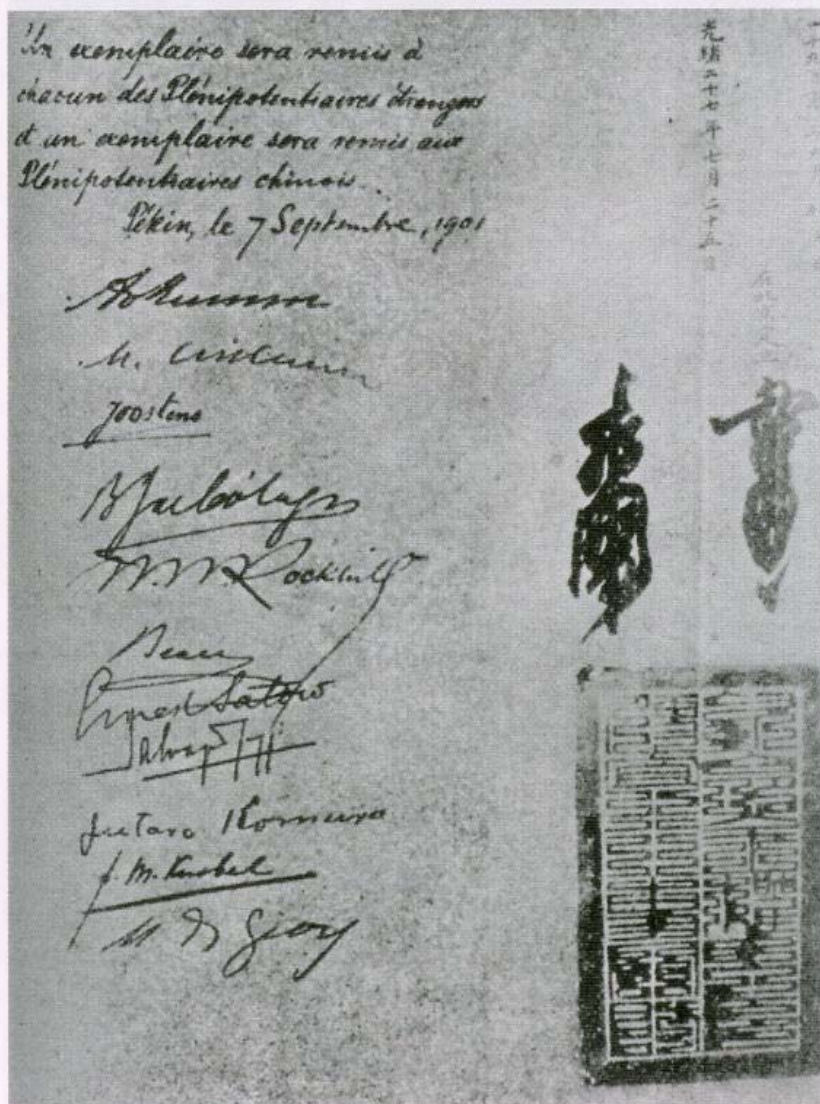 Un exemplaire sera remis à
chacun des Plénipotentiaires étrangers
et un exemplaire sera remis aux
Plénipotentiaires chinois.
Pékin, le 7 Septembre, 1901
A. Mumm
M. Czikann
Joostens
B J de Cólogan
W. W. Rockhill
Beau
Ernest Satow
Salvago Raggi
Jutaro Komura
F. M. Knobel
M de Giers
光緒二十七年七月二十五日